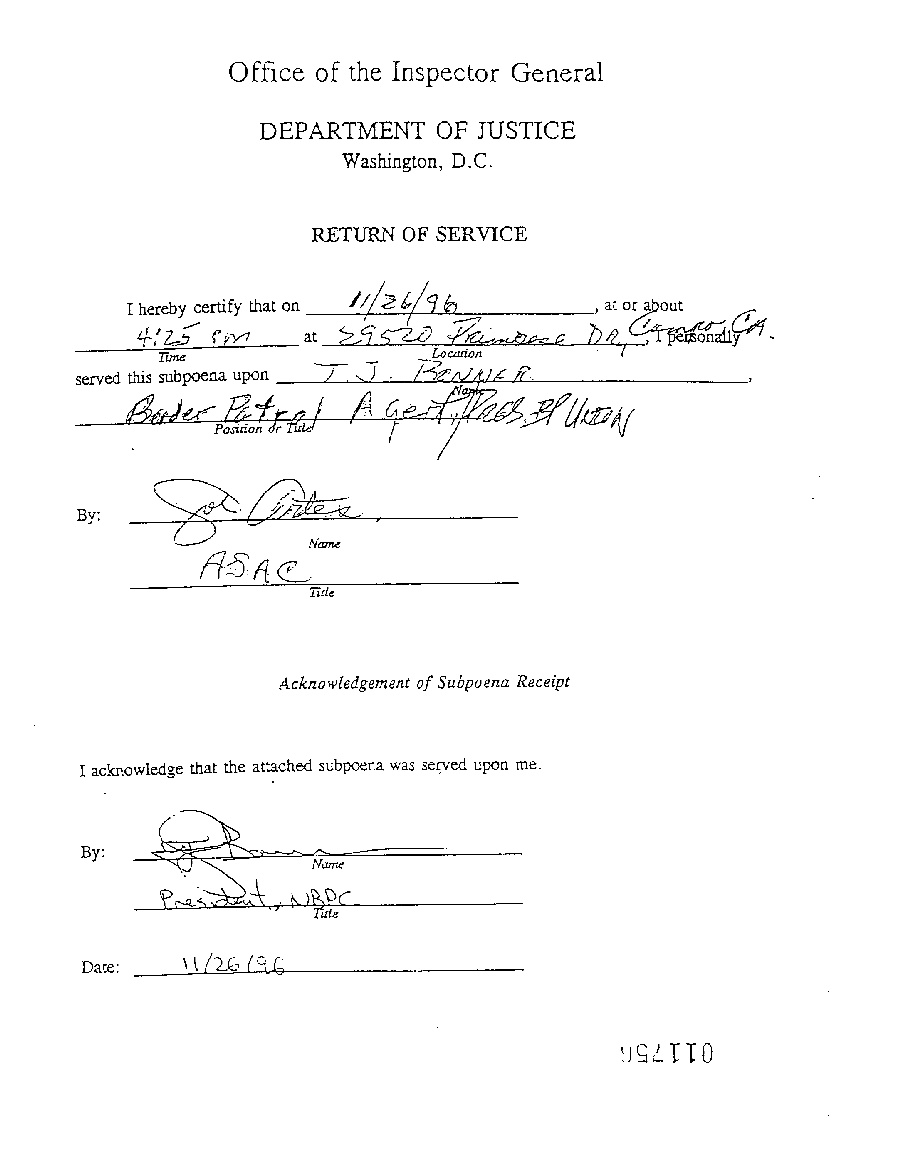 Office of the Inspector General
DEPARTMENT OF JUSTICE
Washington, D.C.
RETURN OF SERVICE
I hereby certify that on 11/26/96, at or about
4:25 pm at 29520 Primrose DR, Campo CA. I personally
Time Location
served this subpoena upon T.J. BONNER,
Name
Border Patrol Agent, Pres. BP UNION
Position or Title
By: Joe Artes
Name
ASAC
Title
Acknowledgement of Subpoena Receipt
I acknowledge that the attached subpoena was served upon me.
By:
Name
President, NBPC
Title
Date: 11/26/96